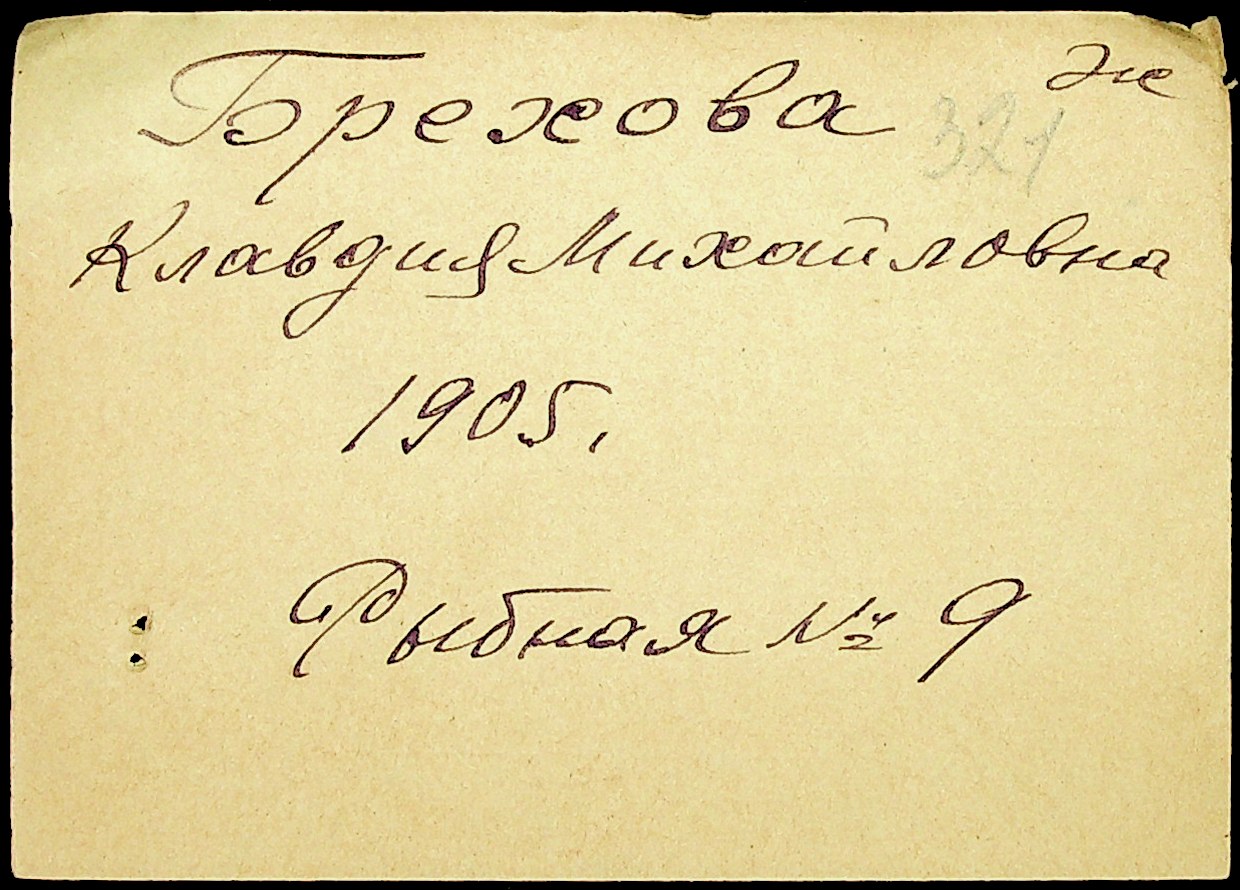 Брехова ж
321
Клавдия Михайловна
1905.
Рыбная № 9